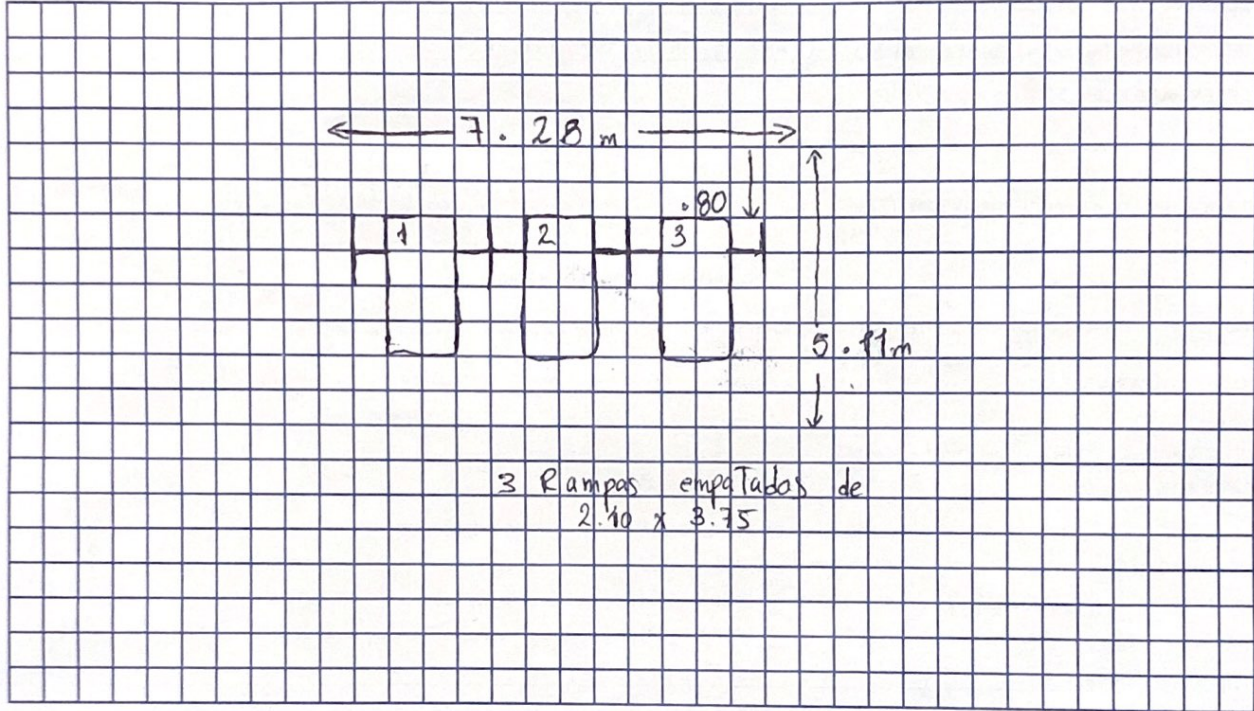 7.28 m
.80
1 2 3
5.11m
3 Rampas empatados de
2.10 x 3.75